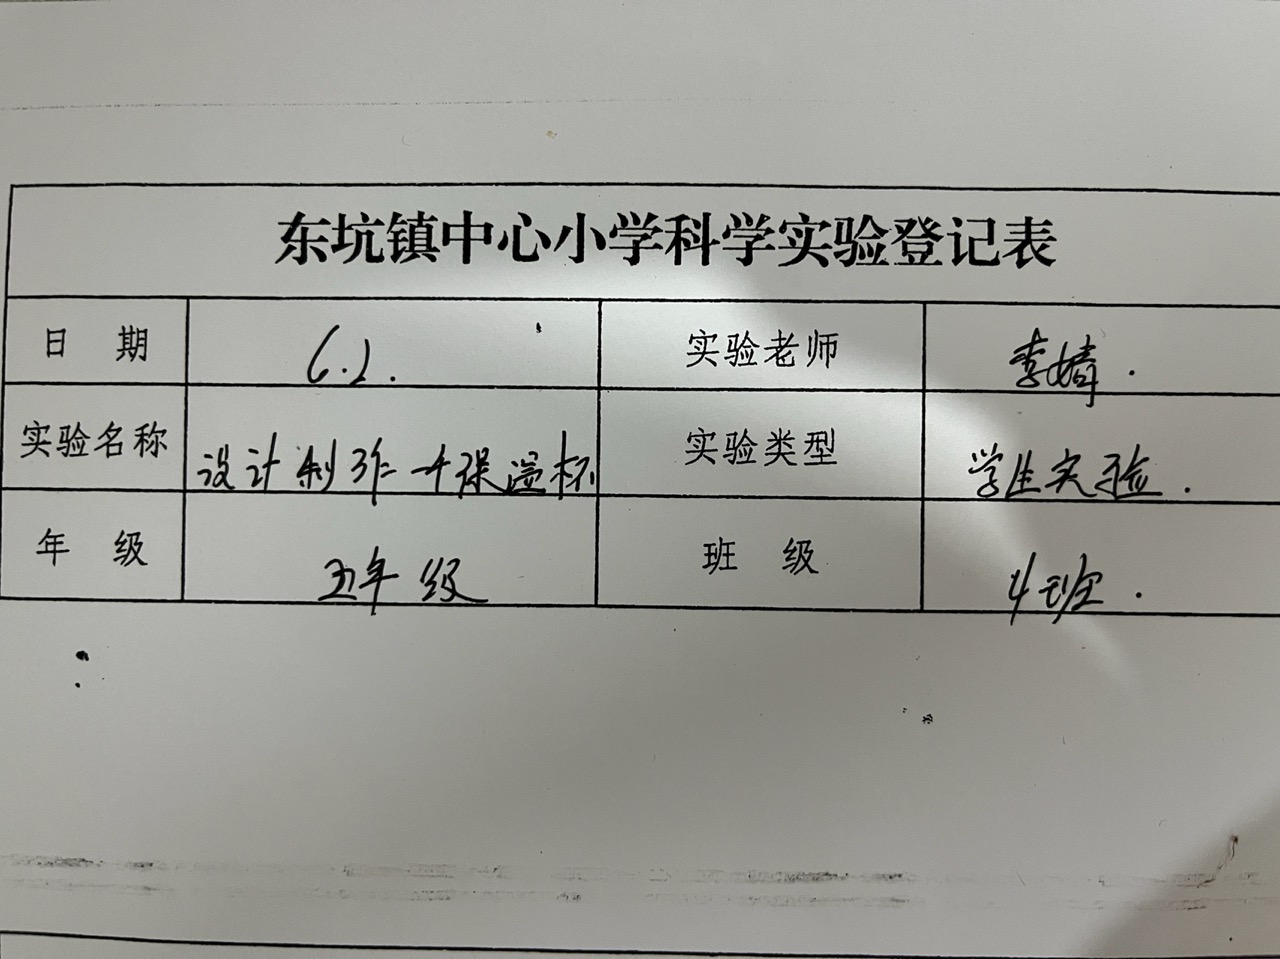 东坑镇中心小学科学实验登记表
日 期 6.2. 实验老师 李婧.
实验名称 设计制作一个保温杯 实验类型 学生实验.
年 级 五年级 班 级 4班.